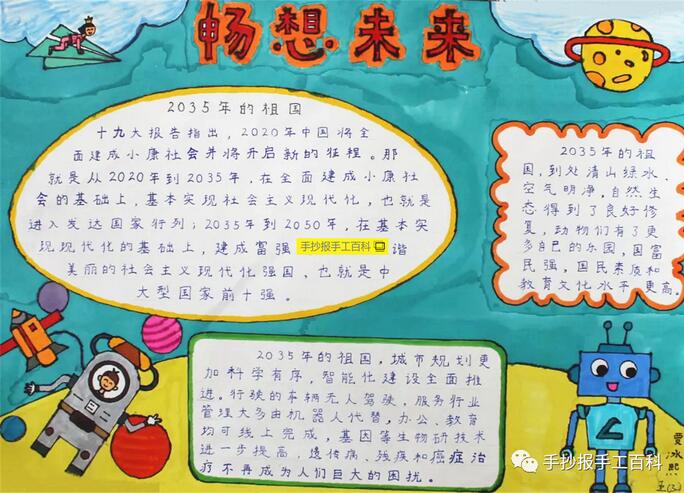 畅想未来
2035年的祖国
十九大报告指出，2020年中国将全
面建成小康社会并将开启新的征程。那
就是从2020年到2035年，在全面建成小康社
会的基础上，基本实现社会主义现代化，也就是
进入发达国家行列；2035年到2050年，在基本实
现现代化的基础上，建成富强
手抄报手工百科
谐
美丽的社会主义现代化强国、也就是中
大型国家前十强。
2035年的祖
国，到处清山绿水、
空气明净，自然生
态得到了良好修
复，动物们有了更
多自己的乐园，国富
民强，国民素质和
教育文化水平更高。
2035年的祖国，城市规划更
加科学有序，智能化建设全面推
进。行驶的车辆无人驾驶，服务行业
管理大多由机器人代替，办公、教育
均可线上完成，基因等生物研技术
进一步提高，遗传病、残疾和癌症治
疗不再成为人们巨大的困扰。
贾冰熙
五(3)
手抄报手工百科